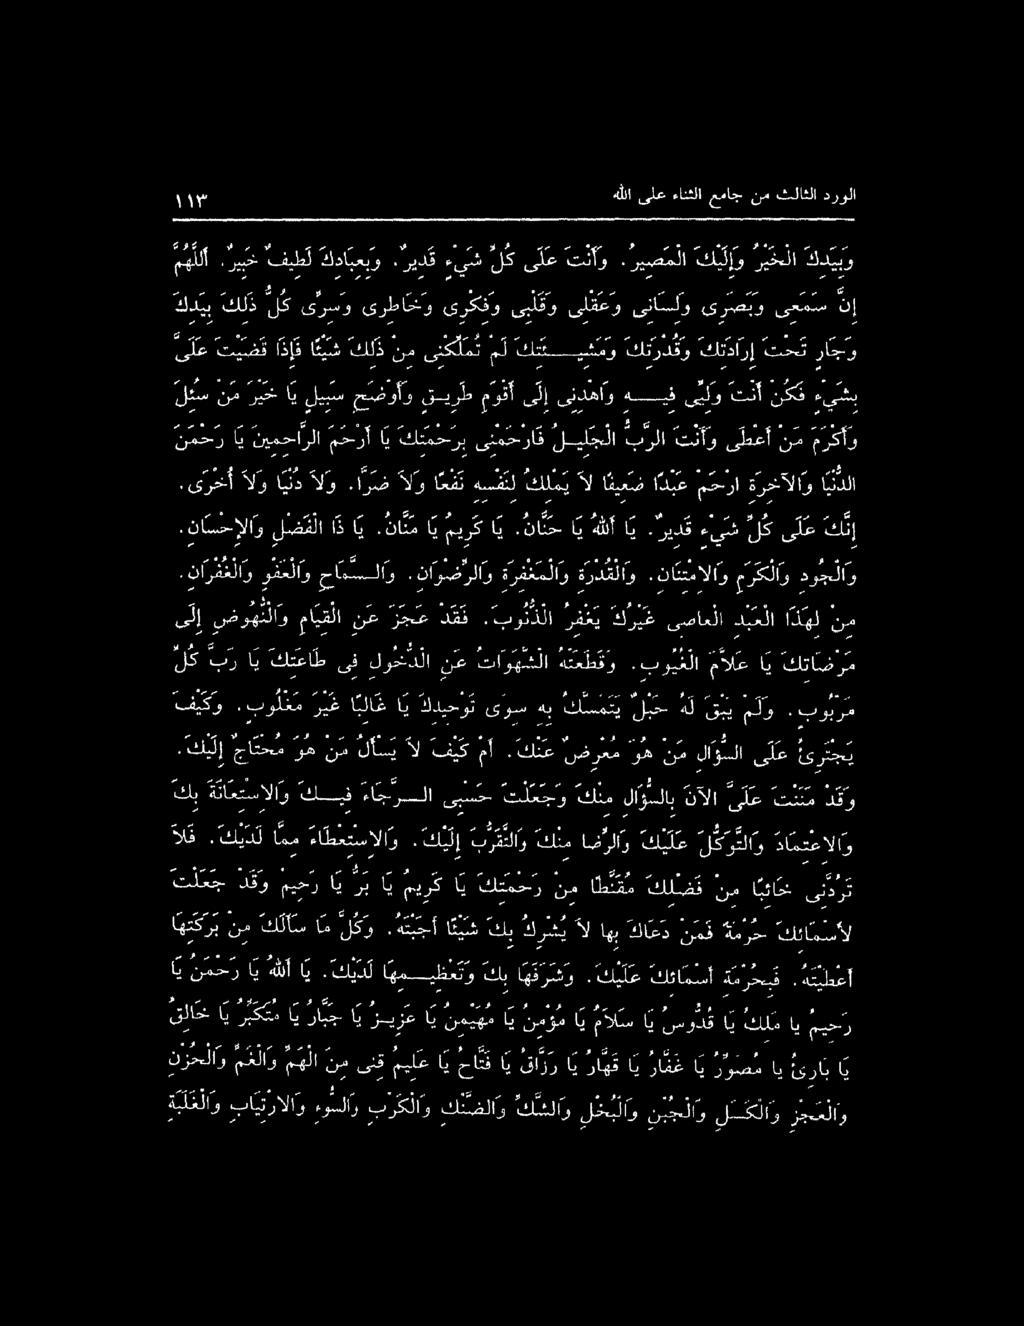 الورد الثالث من جامع الثناء على الله ١١٣
وَبِيَدِكَ الْخَيْرُ وَإِلَيْكَ الْمَصِيرُ. وَأَنْتَ عَلَى كُلِّ شَيْءٍ قَدِيرٌ. وَبِعِبَادِكَ لَطِيفٌ خَبِيرٌ. اَللَّهُمَّ
إِنَّ سَمَعِى وَبَصَرِى وَلِسَانِى وَعَقْلِى وَقَلْبِى وَفِكْرِى وَخَاطِرِى وَسِرِّى كُلُّ ذَلِكَ بِيَدِكَ
وَجَارٍ تَحْتَ إِرَادَتِكَ وَقُدْرَتِكَ وَمَشِيئَتِكَ لَمْ تُمَلِّكْنِى مِنْ ذَلِكَ شَيْئًا فَإِذَا قَضَيْتَ عَلَىَّ
بِشَيْءٍ فَكُنْ أَنْتَ وَلِيِّى فِيهِ وَاهْدِنِى إِلَى أَقْوَمِ طَرِيقٍ وَأَوْضَحِ سَبِيلٍ يَا خَيْرَ مَنْ سُئِلَ
وَأَكْرَمَ مَنْ أَعْطَى وَأَنْتَ الرَّبُّ الْجَلِيلُ فَارْحَمْنِى بِرَحْمَتِكَ يَا أَرْحَمَ الرَّاحِمِينَ يَا رَحْمَنَ
الدُّنْيَا وَالآخِرَةِ ارْحَمْ عَبْدًا ضَعِيفًا لاَ يَمْلِكُ لِنَفْسِهِ نَفْعًا وَلاَ ضَرًّا. وَلاَ دُنْيَا وَلاَ أُخْرَى.
إِنَّكَ عَلَى كُلِّ شَيْءٍ قَدِيرٌ. يَا أَللهُ يَا حَنَّانُ. يَا كَرِيمُ يَا مَنَّانُ. يَا ذَا الْفَضْلِ وَالإِحْسَانِ.
وَالْجُودِ وَالْكَرَمِ وَالاِمْتِنَانِ. وَالْقُدْرَةِ وَالْمَغْفِرَةِ وَالرِّضْوَانِ. وَالسَّمَاحِ وَالْعَفْوِ وَالْغُفْرَانِ.
مِنْ لِهَذَا الْعَبْدِ الْعَاصِى غَيْرُكَ يَغْفِرُ الذُّنُوبَ. فَقَدْ عَجَزَ عَنِ الْقِيَامِ وَالنُّهُوضِ إِلَى
مَرْضَاتِكَ يَا عَلاَّمَ الْغُيُوبِ. وَقَطَعَتْهُ الشَّهَوَاتُ عَنِ الدُّخُولِ فِى طَاعَتِكَ يَا رَبَّ كُلِّ
مَرْبُوبٍ. وَلَمْ يَبْقَ لَهُ حَبْلٌ يَتَمَسَّكُ بِهِ سِوَى تَوْحِيدِكَ يَا غَالِبًا غَيْرَ مَغْلُوبٍ. وَكَيْفَ
يَجْتَرِئُ عَلَى السُّؤَالِ مَنْ هُوَ مُعْرِضٌ عَنْكَ. أَمْ كَيْفَ لاَ يَسْأَلُ مَنْ هُوَ مُحْتَاجٌ إِلَيْكَ.
وَقَدْ مَنَنْتَ عَلَىَّ الآنَ بِالسُّؤَالِ مِنْكَ وَجَعَلْتَ حَسْبِى الرَّجَاءَ فِيكَ وَالاِسْتِعَانَةَ بِكَ
وَالاِعْتِمَادَ وَالتَّوَكُّلَ عَلَيْكَ وَالرِّضَا مِنْكَ وَالتَّقَرُّبَ إِلَيْكَ. وَالاِسْتِعْطَاءَ مِمَّا لَدَيْكَ. فَلاَ
تَرُدَّنِى خَائِبًا مِنْ فَضْلِكَ مُقَنَّطًا مِنْ رَحْمَتِكَ يَا كَرِيمُ يَا بَرُّ يَا رَحِيمُ وَقَدْ جَعَلْتَ
لأَسْمَائِكَ حُرْمَةً فَمَنْ دَعَاكَ بِهَا لاَ يُشْرِكُ بِكَ شَيْئًا أَجَبْتَهُ. وَكُلَّ مَا سَأَلَكَ مِنْ بَرَكَتِهَا
أَعْطَيْتَهُ. فَبِحُرْمَةِ أَسْمَائِكَ عَلَيْكَ. وَشَرَفِهَا بِكَ وَتَعْظِيمِهَا لَدَيْكَ. يَا أَللهُ يَا رَحْمَنُ يَا
رَحِيمُ يَا مَلِكُ يَا قُدُّوسُ يَا سَلاَمُ يَا مُؤْمِنُ يَا مُهَيْمِنُ يَا عَزِيزُ يَا جَبَّارُ يَا مُتَكَبِّرُ يَا خَالِقُ
يَا بَارِئُ يَا مُصَوِّرُ يَا غَفَّارُ يَا قَهَّارُ يَا رَزَّاقُ يَا فَتَّاحُ يَا عَلِيمُ قِنِى مِنَ الْهَمِّ وَالْغَمِّ وَالْحُزْنِ
وَالْعَجْزِ وَالْكَسَلِ وَالْجُبْنِ وَالْبُخْلِ وَالشَّكِّ وَالضَّنْكِ وَالْكَرْبِ وَالسُّوءِ وَالاِرْتِيَابِ وَالْغَلَبَةِ